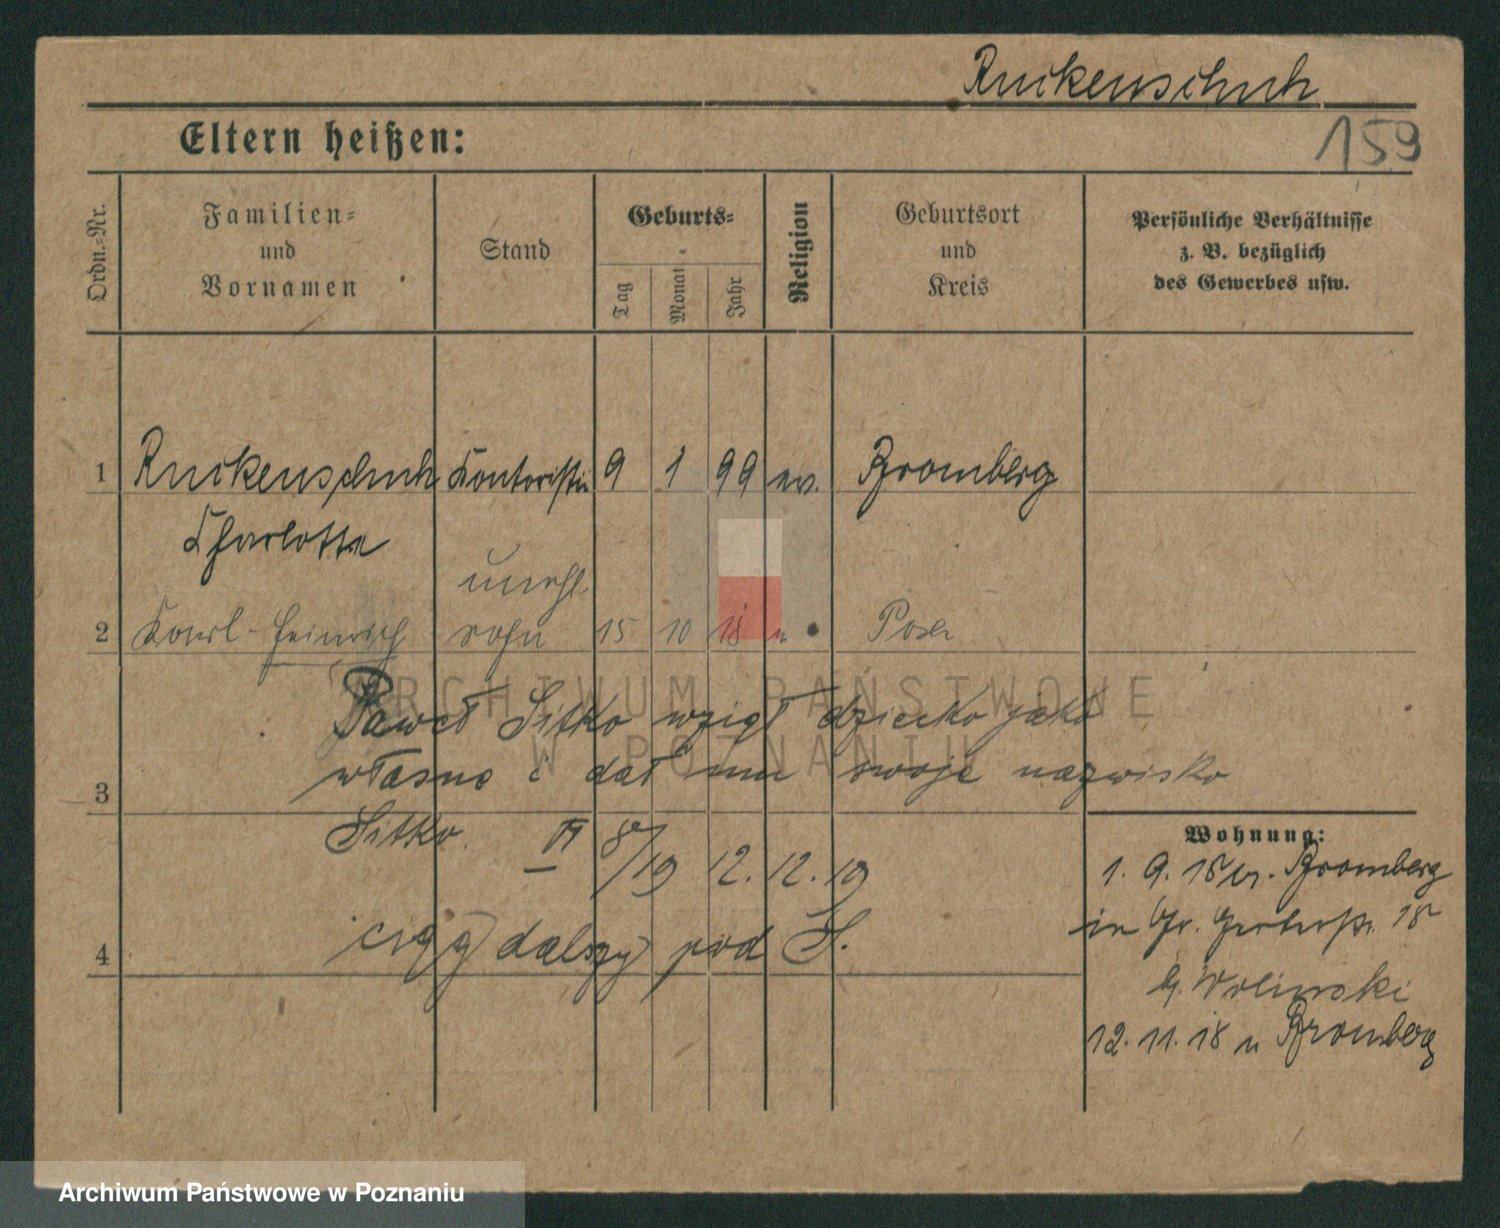 Ruckenschuh
159
Eltern heißen:
Ordn.-Nr.
Familien-
und
Vornamen
Stand
Geburts-
Tag
Monat
Jahr
Religion
Geburtsort
und
Kreis
Persönliche Verhältnisse
z. B. bezüglich
des Gewerbes usw.
1 Ruckenschuh Kontoristin 9 1 99 ev. Bromberg
Charlotte
unehl.
2 Karl-Heinrich sohn 15 10 18 Posen
Paweł Sitko wziął dziecko jako
własne i dał mu swoje nazwisko
3
Sitko. VI 8/19 12.12.19
ciąg dalszy pod S.
4
Wohnung:
1. 9. 18 Bromberg
in Gr. Gerberstr. 18
b. Wolinski
12. 11. 18 n Bromberg
ARCHIWUM PAŃSTWOWE
W POZNANIU
Archiwum Państwowe w Poznaniu